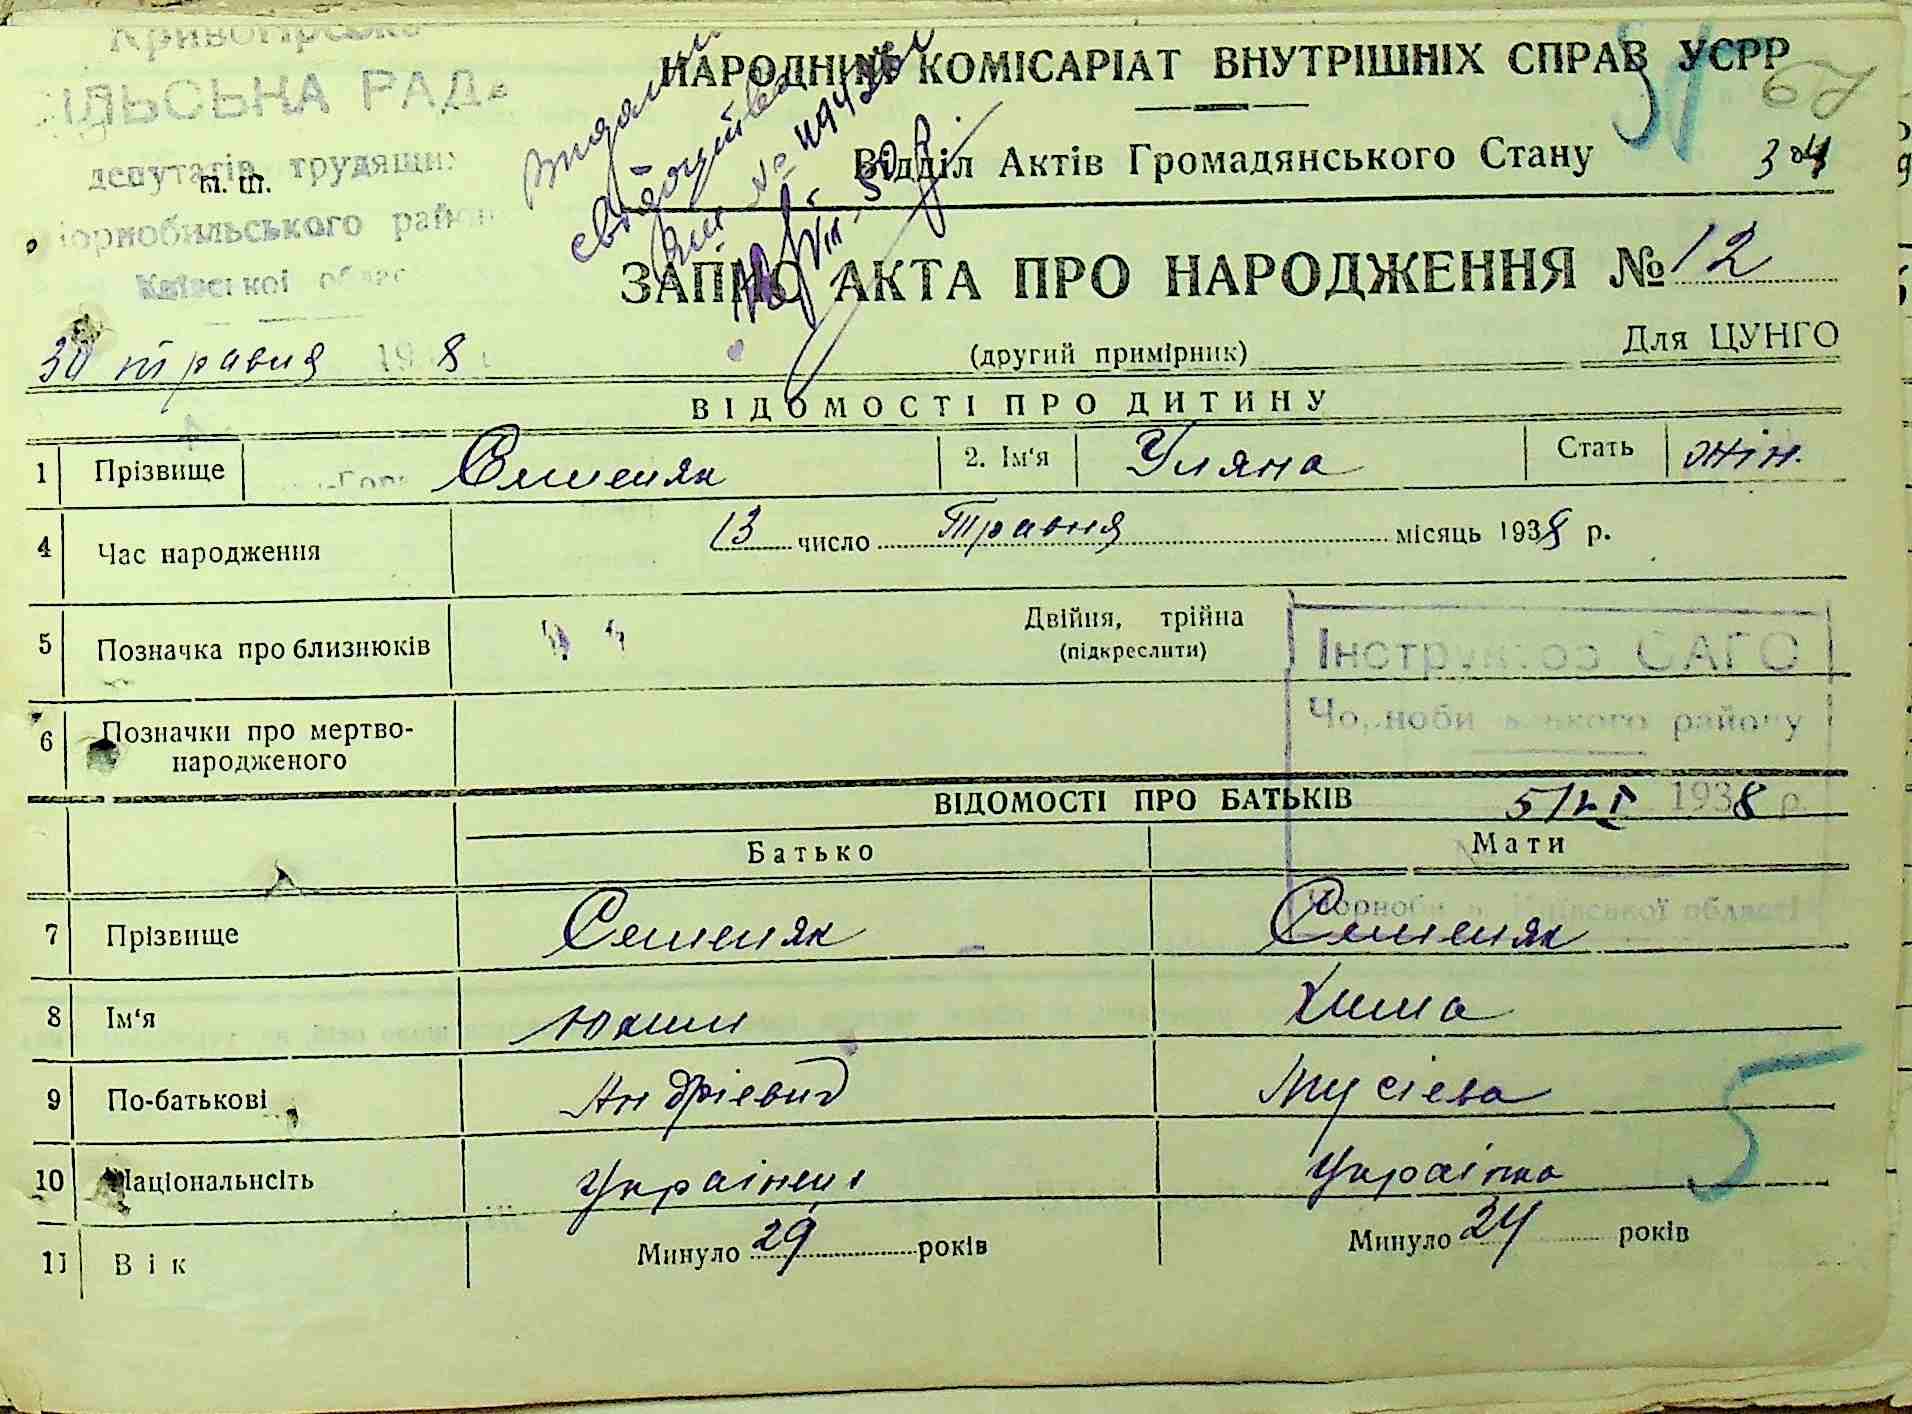 Кривогірська
СІЛЬСЬКА РАДА
депутатів трудящих
т. ш.
Чорнобильського району
Київської області
30 травня 1938 р.
НАРОДНИЙ КОМІСАРІАТ ВНУТРІШНІХ СПРАВ УСРР
Відділ Актів Громадянського Стану
304
видали
свідоцтво
№
ЗАПИС АКТА ПРО НАРОДЖЕННЯ № 12
(другий примірник)
Для ЦУНГО
ВІДОМОСТІ ПРО ДИТИНУ
1 Прізвище Семеняк 2. Ім'я Уляна Стать жін.
4 Час народження 13 число Травня місяць 1938 р.
5 Позначка про близнюків Двійня, трійна
(підкреслити)
6 Позначки про мертво-
народженого
Інструктор ОАГС
Чорнобильського району
5/VI 1938 р.
Чорнобиль Київської області
ВІДОМОСТІ ПРО БАТЬКІВ
Батько Мати
7 Прізвище Семеняк Семеняк
8 Ім'я Хима
9 По-батькові Андрієвич Мусієва
10 Національнсіть Українець Українка
11 Вік Минуло 29 років Минуло 24 років
5